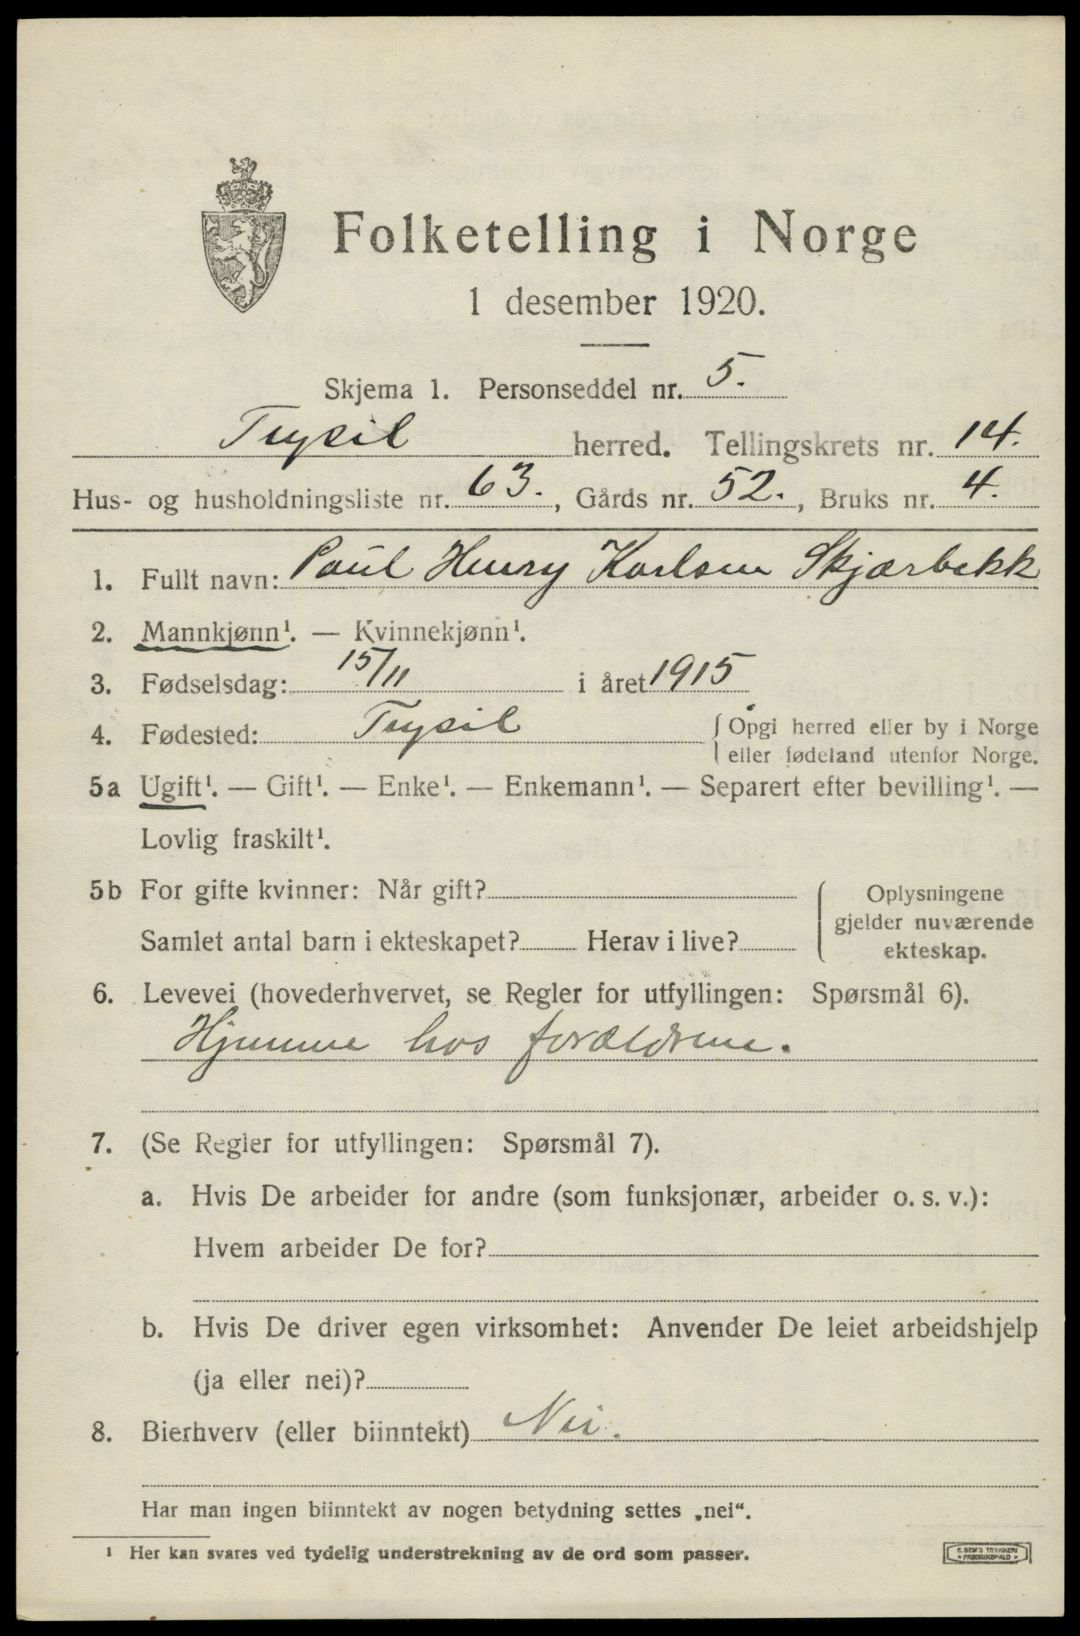 Folketelling i Norge
1 desember 1920.
Skjema 1. Personseddel nr. 5.
Trysil herred. Tellingskrets nr. 14.
Hus- og husholdningsliste nr. 63., Gårds nr. 52., Bruks nr. 4.
1. Fullt navn: Paul Henry Karlsen Skjærbekk
2. Mannkjønn¹. — Kvinnekjønn¹.
3. Fødselsdag: 15/11 i året 1915
4. Fødested: Trysil { Opgi herred eller by i Norge
eller fødeland utenfor Norge.
5a Ugift¹. — Gift¹. — Enke¹. — Enkemann¹. — Separert efter bevilling¹. —
Lovlig fraskilt¹.
5b For gifte kvinner: Når gift?
Samlet antal barn i ekteskapet? Herav i live?
Oplysningene
gjelder nuværende
ekteskap.
6. Levevei (hovederhvervet, se Regler for utfyllingen: Spørsmål 6).
Hjemme hos forældrene.
7. (Se Regler for utfyllingen: Spørsmål 7).
a. Hvis De arbeider for andre (som funksjonær, arbeider o. s. v.):
Hvem arbeider De for?
b. Hvis De driver egen virksomhet: Anvender De leiet arbeidshjelp
(ja eller nei)?
8. Bierhverv (eller biinntekt) Nei.
Har man ingen biinntekt av nogen betydning settes „nei“.
¹ Her kan svares ved tydelig understrekning av de ord som passer.
E. SEM'S TRYKKERI
FREDRIKSHALD